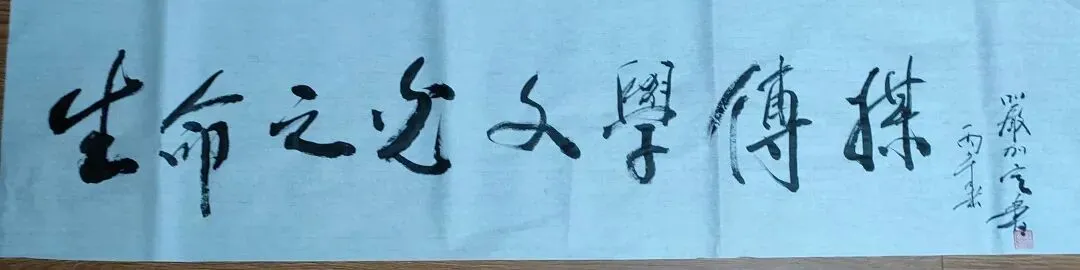 生命之光文學傳媒
丙午春
嚴加定書